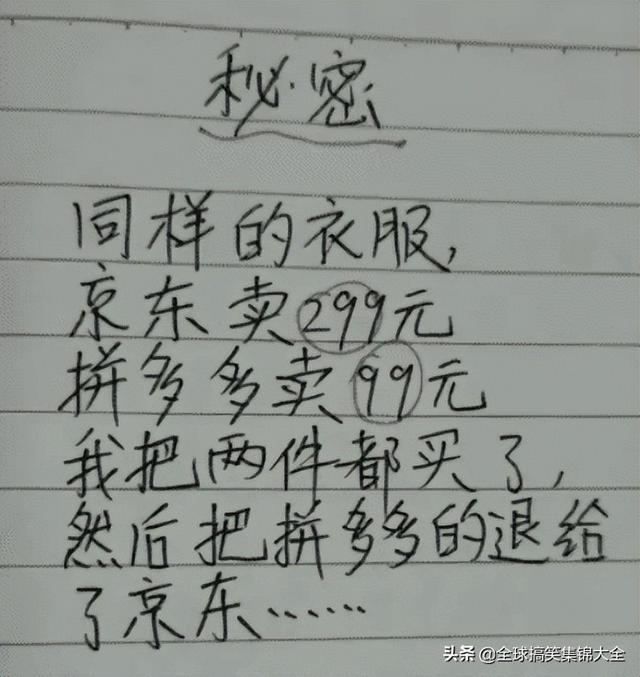 秘密
同样的衣服,
京东卖299元
拼多多卖99元
我把两件都买了,
然后把拼多多的退给
了京东……
头条 @全球搞笑集锦大全